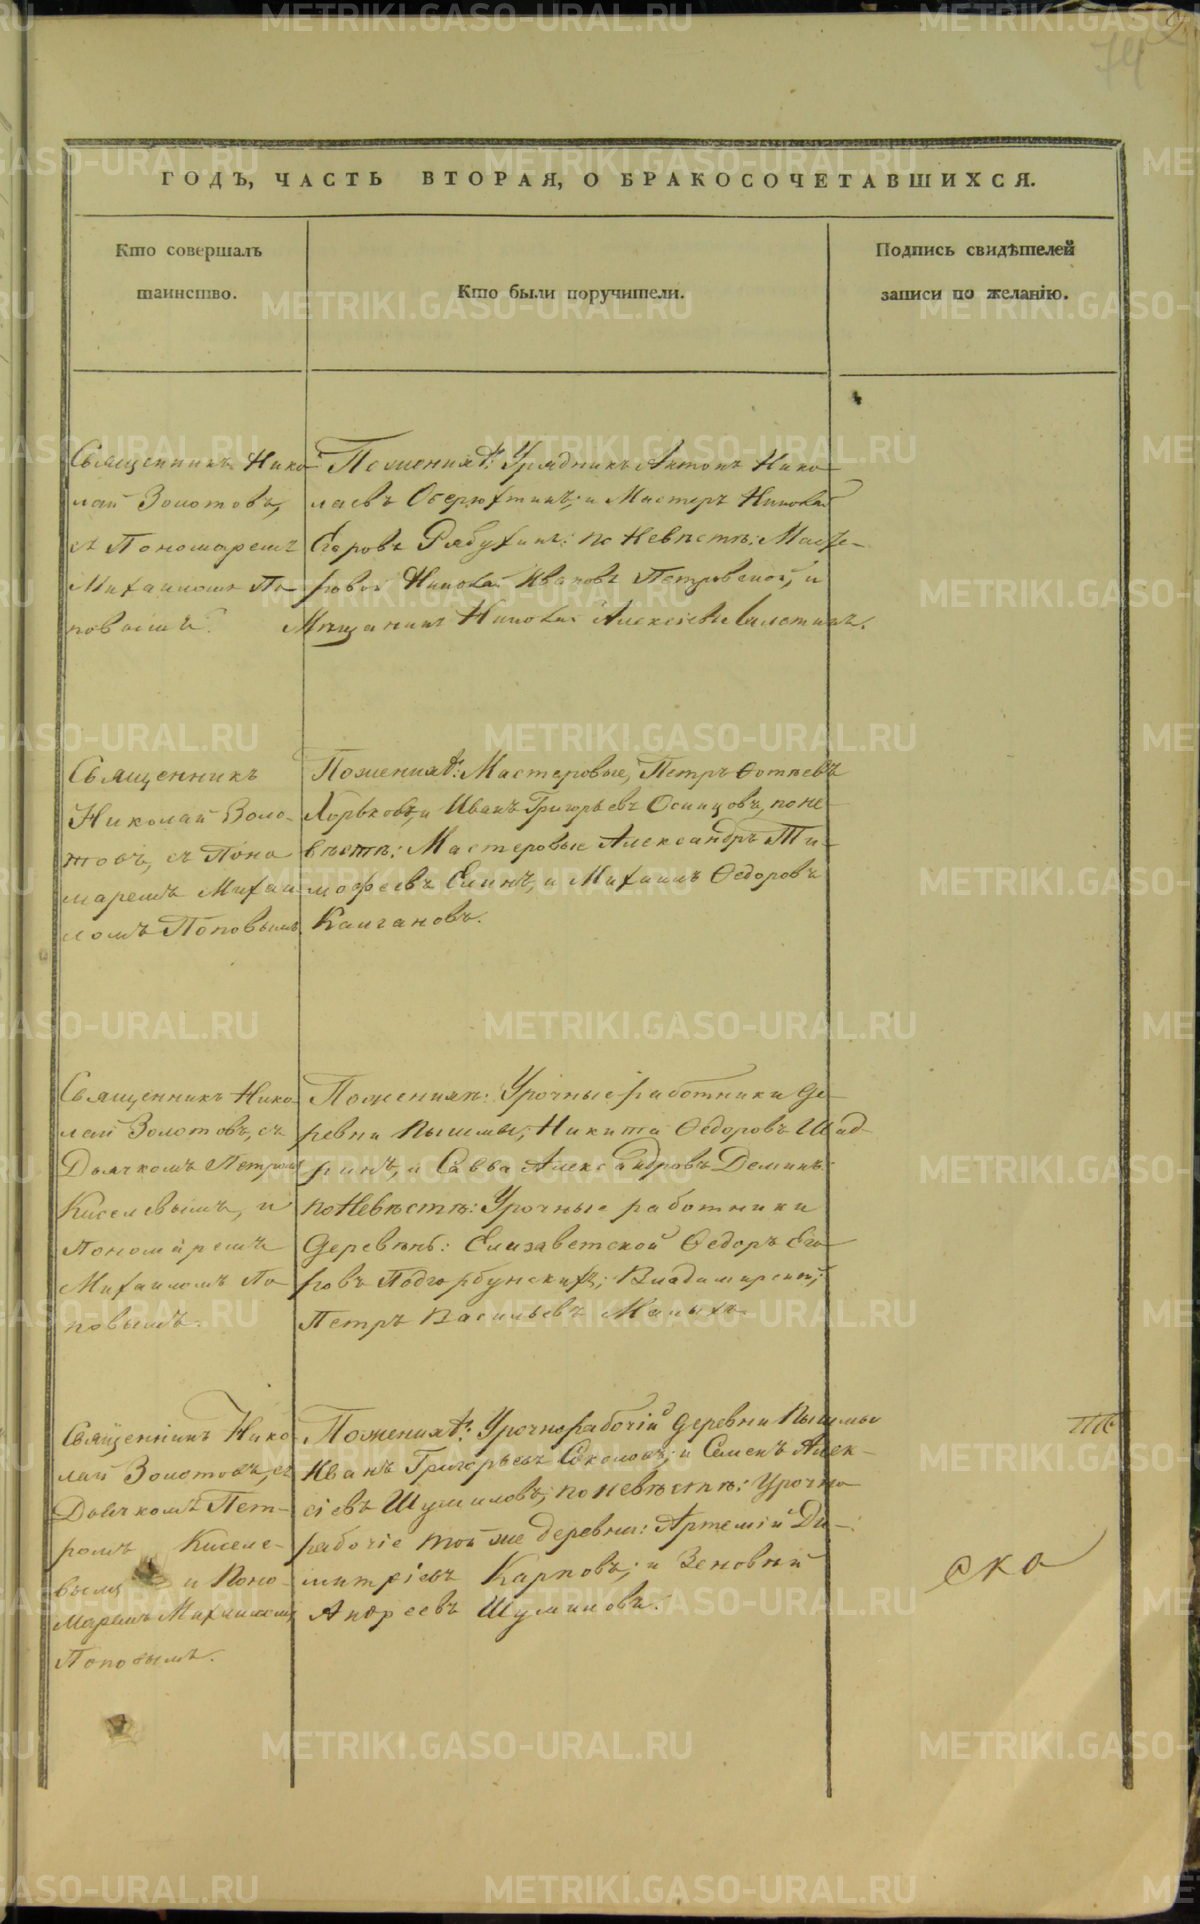 74
ГОДЪ, ЧАСТЬ ВТОРАЯ, О БРАКОСОЧЕТАВШИХСЯ.
Кто совершалъ
таинство.
Кто были поручители.
Подпись свидѣтелей
записи по желанію.
Священникъ Нико-
лай Золотовъ,
съ Пономаремъ
Михаиломъ По-
повымъ.
По женихѣ: Урядникъ Антонъ Нико-
лаевъ и Мастеръ Николай
Егоровъ Рябухинъ: по Невѣстѣ: Масте-
ровой Николай Ивановъ Петровской, и
Мѣщанинъ Николай Алексѣевъ
Священникъ
Николай Золо-
товъ, съ Поно
маремъ Михаи
ломъ Поповымъ.
По женихѣ: Мастеровые, Петръ Фотіевъ
Хорьковъ, и Иванъ Григорьевъ Осинцовъ, по не-
вѣстѣ: Мастеровые Александръ Ти-
мофеевъ Елинъ, и Михаилъ Ѳедоровъ
Калгановъ.
Священникъ Нико-
лай Золотовъ, съ
Дьячкомъ Петромъ
Киселевымъ, и
Пономаремъ
Михаиломъ По
повымъ.
По женихѣ: Урочные работники де-
ревни Пышмы, Никита Ѳедоровъ Шад-
ринъ, и Савва Александровъ Деминъ:
по Невѣстѣ: Урочные работники
деревень: Елизаветской Ѳедоръ Его-
ровъ Подгорбунскихъ; Владимирской,
Петръ Васильевъ Малыхъ.
Священникъ Нико-
лай Золотовъ, съ
Дьячкомъ Пет-
ромъ Киселе-
вымъ и Поно-
маремъ Михаиломъ
Поповымъ.
По женихѣ: Урочнорабочій деревни Пышмы
Иванъ Григорьевъ Соколовъ, и Семенъ Алек-
сѣевъ Шумиловъ; по невѣстѣ: Урочно
рабочіе той же деревни: Артемій Ди-
митріевъ Карповъ; и Зеновій
Андреевъ Шумиловъ.
ско
METRIKI.GASO-URAL.RU